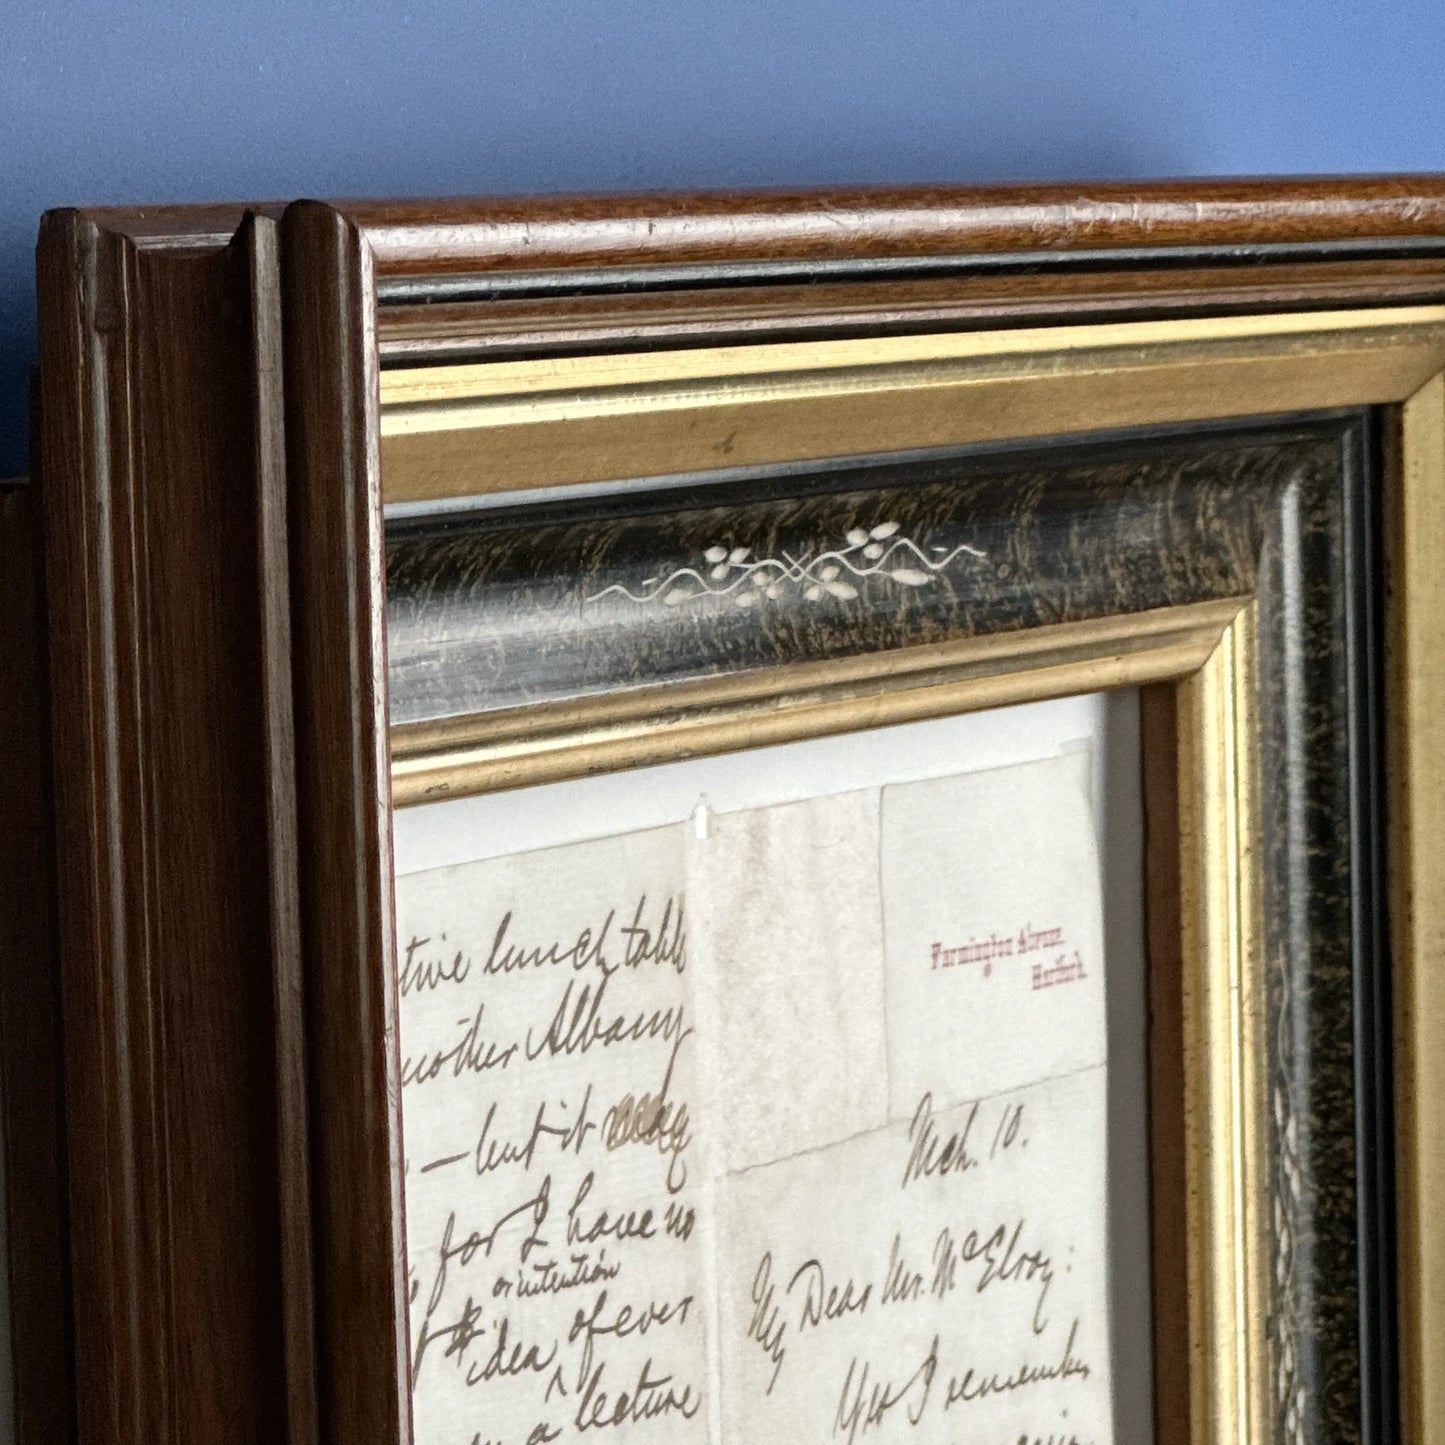 tive lunch table
nother Albany
– but it may
for I have no
or intention
idea of ever
a lecture
Farmington Avenue,
Hartford.
Mch. 10.
My Dear Mr. McElroy:
Yes I remember